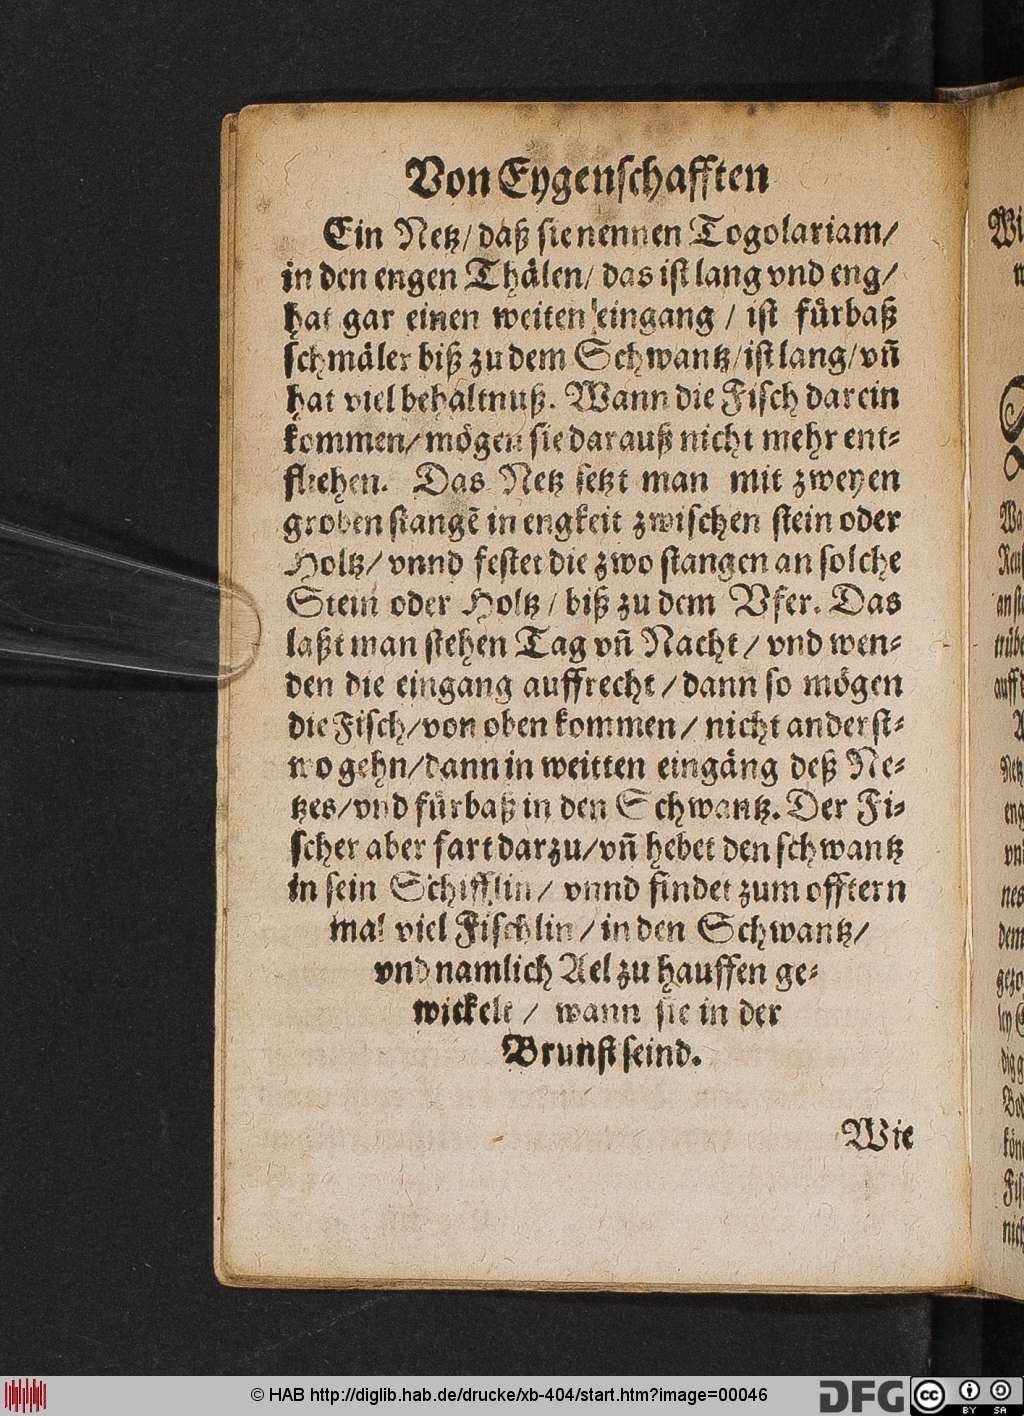 Von Eygenschafften
Ein Netz/ daß sie nennen Togolariam/
in den engen Thälen/ das ist lang vnd eng/
hat gar einen weiten eingang / ist fürbaß
schmäler biß zu dem Schwantz/ ist lang/ vñ
hat viel behaltnuß. Wann die Fisch darein
kommen/ mögen sie darauß nicht mehr ent-
fliehen. Das Netz setzt man mit zweyen
groben stangẽ in engkeit zwischen stein oder
Holtz/ vnnd festet die zwo stangen an solche
Stein oder Holtz / biß zu dem Vfer. Das
laßt man stehen Tag vñ Nacht / vnd wen-
den die eingang auffrecht / dann so mögen
die Fisch/ von oben kommen / nicht anderst-
wo gehn/ dann in weitten eingäng deß Ne-
tzes/ vnd fürbaß in den Schwantz. Der Fi-
scher aber fart darzu/ vñ hebet den schwantz
in sein Schifflin / vnnd findet zum offtern
mal viel Fischlin / in den Schwantz/
vnd namlich Ael zu hauffen ge-
wickelt / wann sie in der
Brunst seind.
Wie
© HAB http://diglib.hab.de/drucke/xb-404/start.htm?image=00046
DFG
cc
BY SA